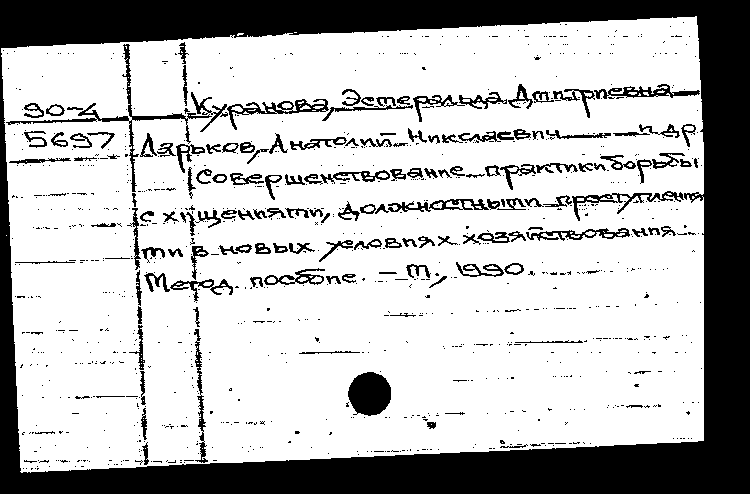 90-4
5697
Куранова, Эсмеральда Дмитриевна
Ларьков, Анатолий Николаевич и др.
Совершенствование практики борьбы
с хищениями, должностными преступления
ми в новых условиях хозяйствования:
Метод. пособие. – М., 1990.